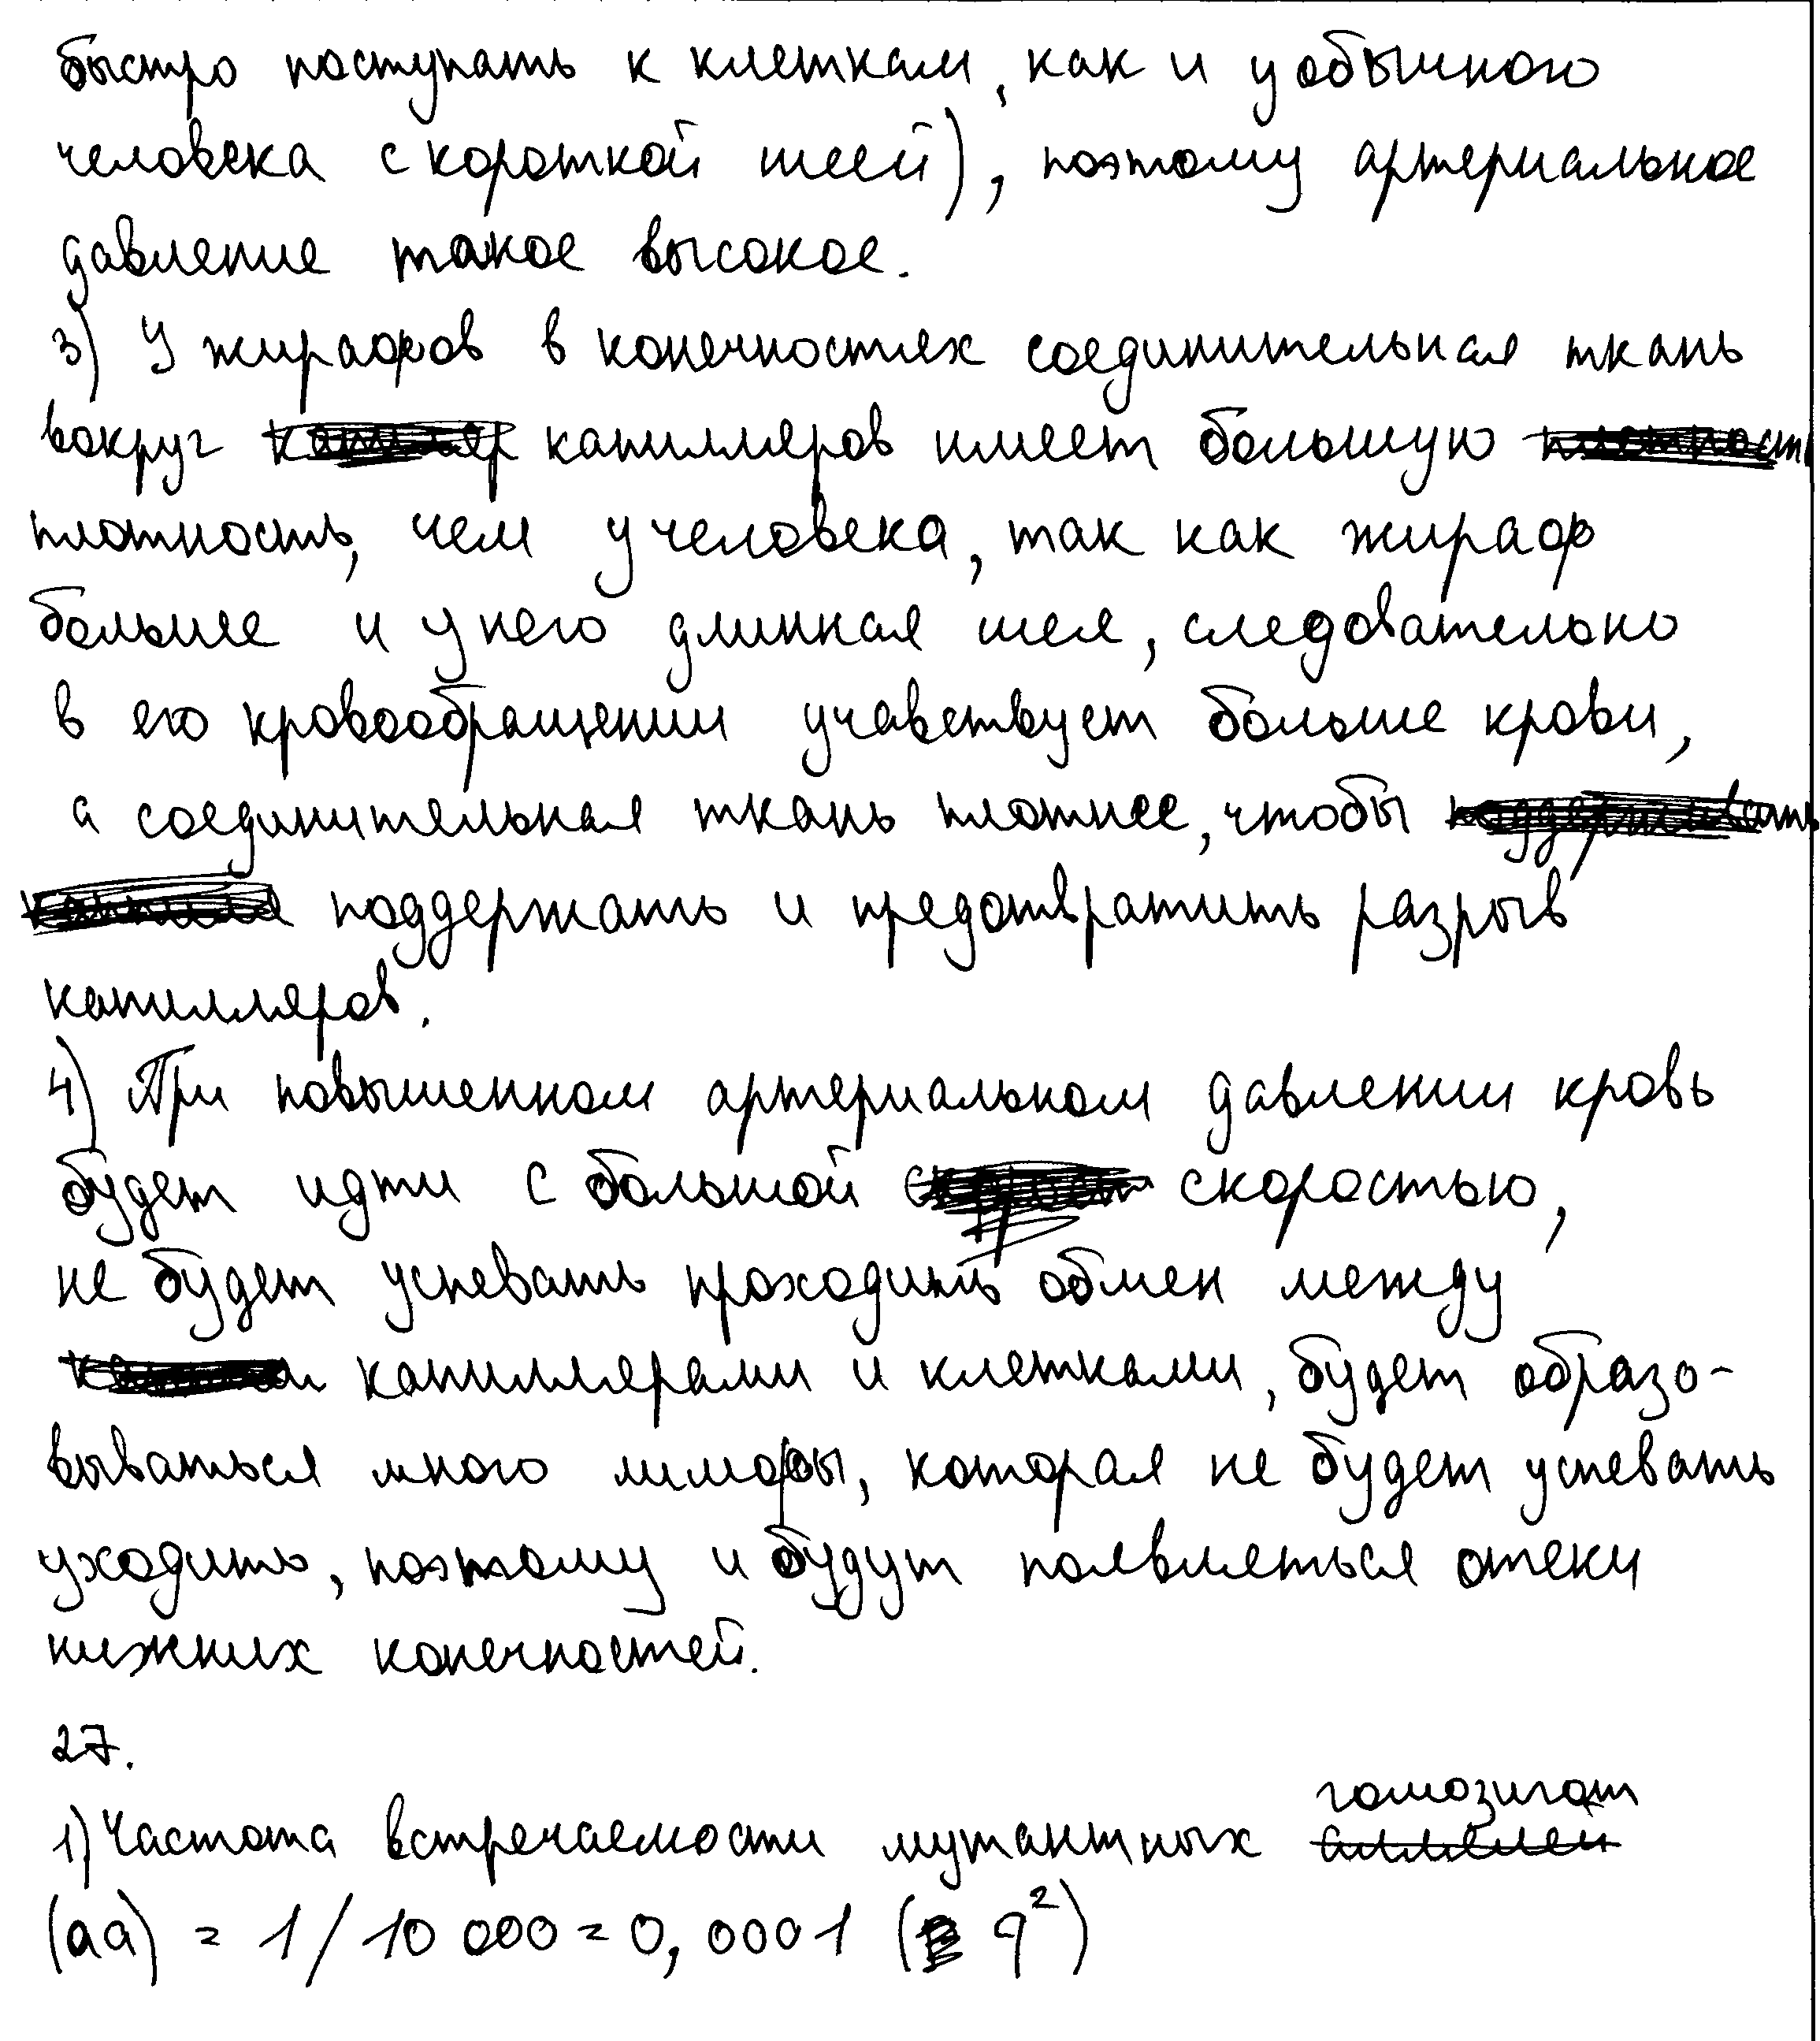 быстро поступать к клеткам, как и у обычного
человека с короткой шеей), поэтому артериальное
давление такое высокое.
3) У жирафов в конечностях соединительная ткань
вокруг капилляров имеет большую
плотность, чем у человека, так как жираф
больше и у него длинная шея, следовательно
в его кровообращении учавствует больше крови,
а соединительная ткань плотнее, чтобы
поддержать и предотвратить разрыв
капилляров.
4) При повышенном артериальном давлении кровь
будет идти с большой скоростью,
не будет успевать проходить обмен между
капиллярами и клетками, будет образо-
вываться много лимфы, которая не будет успевать
уходить, поэтому и будут появляеться отеки
нижних конечностей.
27.
1) Частота встречаемости мутантных гомозигот
(aa) = 1/10 000 = 0,0001 (q²)